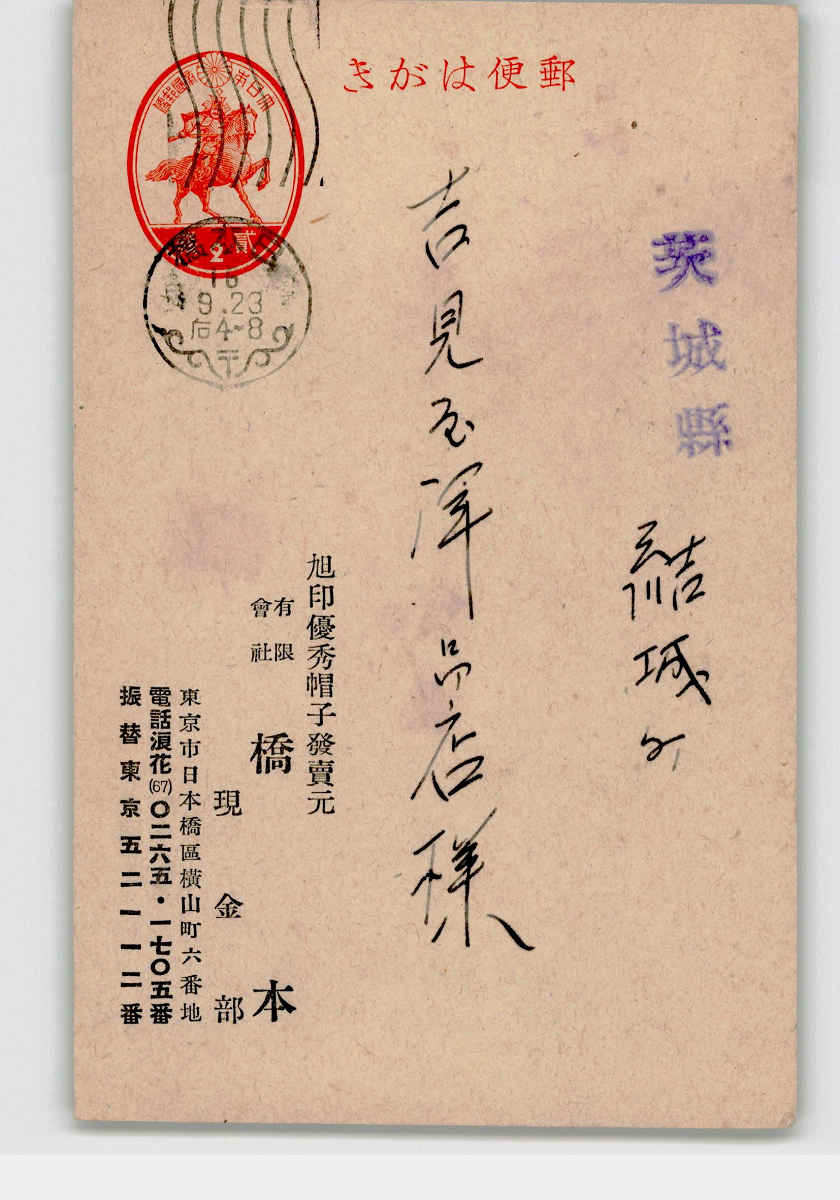 郵便はがき
大日本帝國郵便
貳
2
16
9.23
后4-8
〒
茨城縣
結城町
吉見屋洋品店様
旭印優秀帽子發賣元
有限會社 橋本
現金部
東京市日本橋區橫山町六番地
電話浪花(67)〇二六五・一七〇五番
振替東京五二一一二番